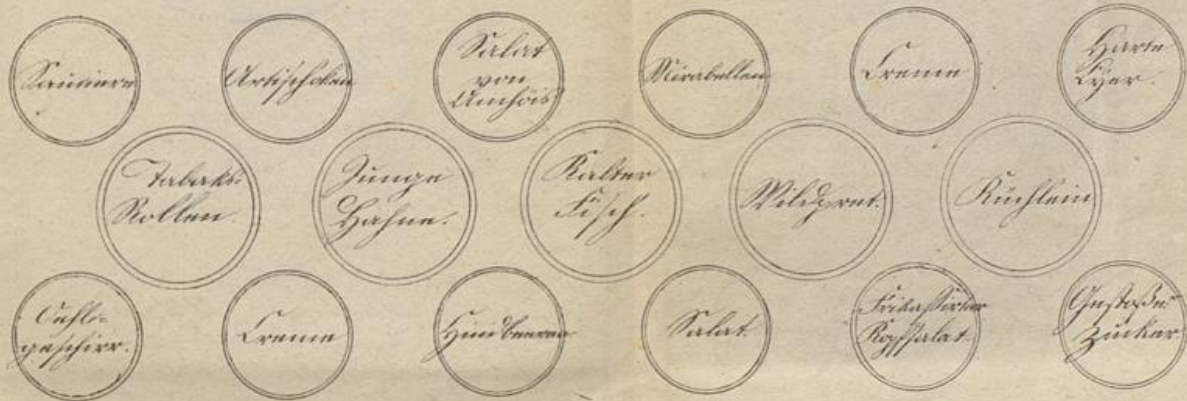 Sauciere
Artischoken
Salat
von
Anchois
Mirabellen
Creme
Harte
Eyer.
Tabaks-
Rollen.
Junge
Hahne.
Kalter
Fisch.
Wildpret.
Küchlein
Oehl-
geschirr.
Creme
Himbeeren
Salat.
Frikassirter
Kopfsalat.
Gestoßer
Zucker.